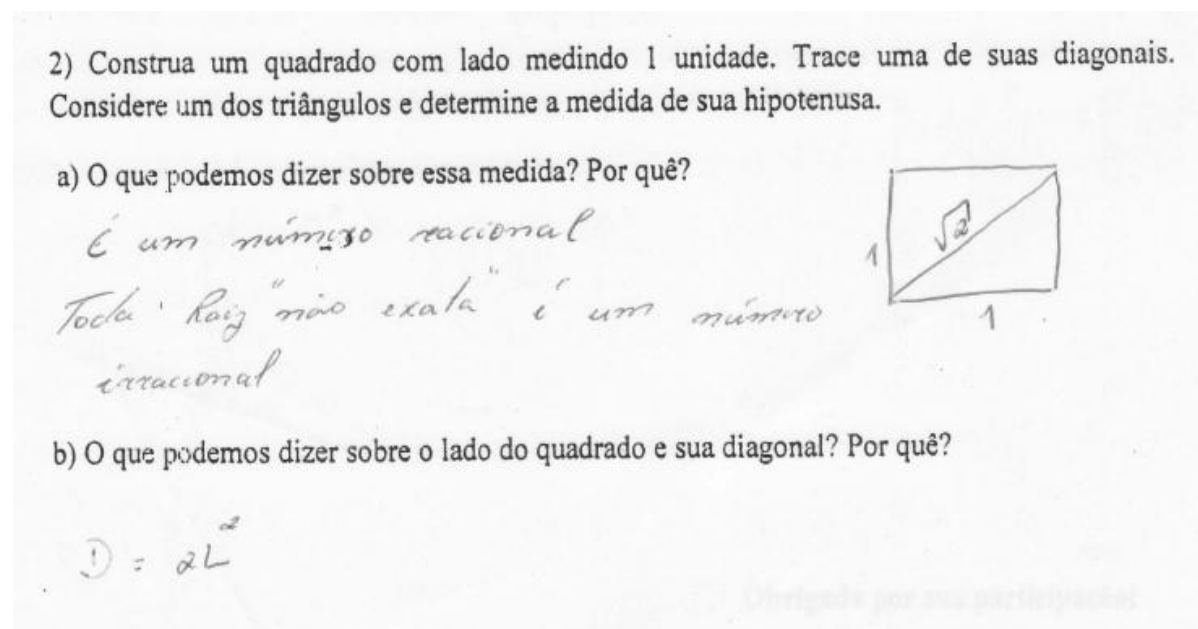 2) Construa um quadrado com lado medindo 1 unidade. Trace uma de suas diagonais.
Considere um dos triângulos e determine a medida de sua hipotenusa.
a) O que podemos dizer sobre essa medida? Por quê?
É um número racional
Toda Raiz "não exata" é um número
irracional
√2
1
1
b) O que podemos dizer sobre o lado do quadrado e sua diagonal? Por quê?
D = 2L²
Obrigada por sua participação!